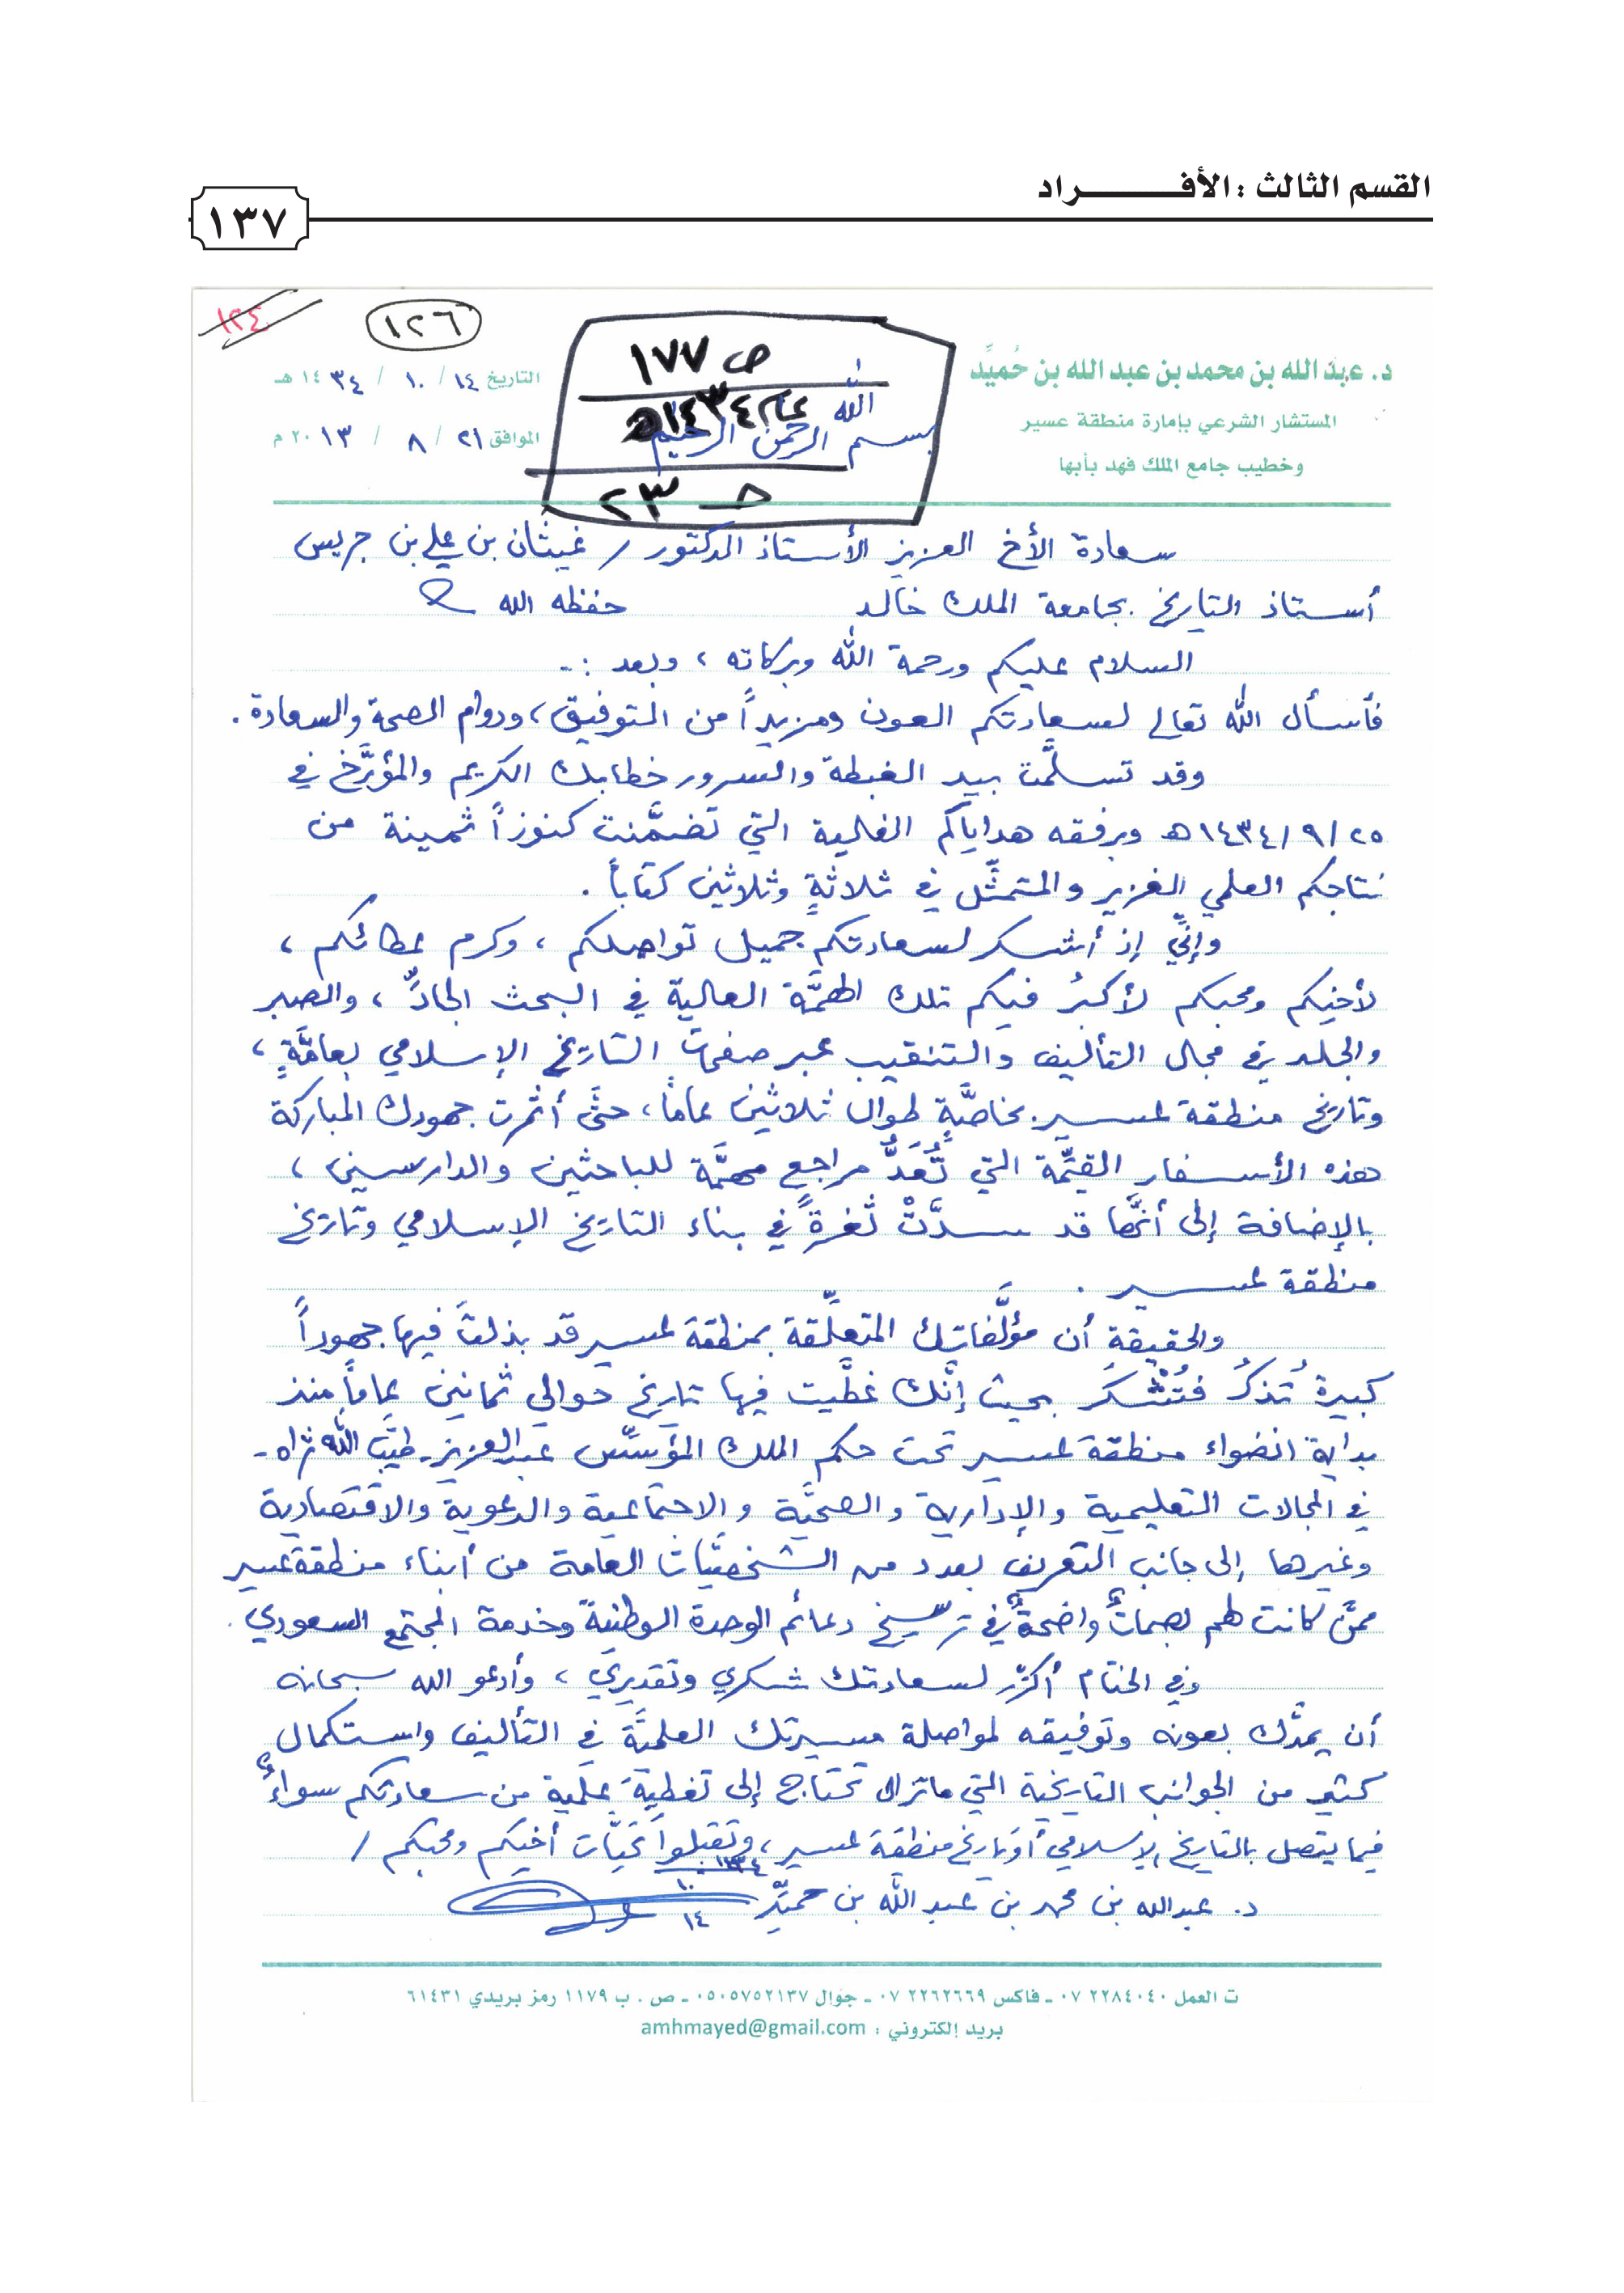 القسم الثالث : الأفـــــــراد
١٣٧
١٢٤
١٢٦
ص ١٧٧
عام ١٤٣٤هـ
حـ ٢٣
بسم الله الرحمن الرحيم
د. عبد الله بن محمد بن عبد الله بن حُميِّد
المستشار الشرعي بإمارة منطقة عسير
وخطيب جامع الملك فهد بأبها
التاريخ ١٤ / ١٠ / ١٤٣٤ هـ
الموافق ٢١ / ٨ / ٢٠١٣ م
سعادة الأخ العزيز الأستاذ الدكتور / غيثان بن علي بن جريس
أستاذ التاريخ بجامعة الملك خالد حفظه الله
السلام عليكم ورحمة الله وبركاته ، وبعد :-
فأسأل الله تعالى لسعادتكم العون ومزيداً من التوفيق ، ودوام الصحة والسعادة .
وقد تسلَّمت بيد الغبطة والسرور خطابك الكريم والمؤرَّخ في
٢٥ / ٩ / ١٤٣٤هـ وبرفقه هداياكم الغالية التي تضمَّنت كنوزاً ثمينة من
نتاجكم العلمي الغزير والمتمثِّل في ثلاثةٍ وثلاثين كتاباً .
وإنِّي إذ أشكر لسعادتكم جميل تواصلكم ، وكرم عطائكم ،
لأخيكم ومحبكم لأكبرُ فيكم تلك الهمَّة العالية في البحث الجادِّ ، والصبر
والجلد في مجال التأليف والتنقيب عبر صفحات التاريخ الإسلامي بعامَّةٍ ،
وتاريخ منطقة عسير بخاصَّةٍ طوال ثلاثين عاماً ، حتَّى أثمرت جهودك المباركة
هذه الأسفار القيِّمة التي تُعَدُّ مراجع مهمَّة للباحثين والدارسين ،
بالإضافة إلى أنَّها قد سدَّتْ ثغرةً في بناء التاريخ الإسلامي وتاريخ
منطقة عسير .
والحقيقة أن مؤلَّفاتِك المتعلِّقة بمنطقة عسير قد بذلتَ فيها جهوداً
كبيرةً تُذكرُ فتُشْكَر بحيث إنَّك غطَّيت فيها تاريخ حوالي ثمانين عاماً منذ
بداية انضواء منطقة عسير تحت حكم الملك المؤسِّس عبدالعزيز - طيَّب الله ثراه -
في المجالات التعليمية والإدارية والصحيَّة والاجتماعية والدعوية والاقتصادية
وغيرها إلى جانب التعريف بعدد من الشخصيَّات العامة من أبناء منطقة عسير
ممَّن كانت لهم بصماتٌ واضحةٌ في ترسيخ دعائم الوحدة الوطنية وخدمة المجتمع السعودي .
وفي الختام أكرِّر لسعادتك شكري وتقديري ، وأدعو الله سبحانه
أن يمدَّك بعونه وتوفيقه لمواصلة مسيرتك العلميَّة في التأليف واستكمال
كثير من الجوانب التاريخية التي ماتزال تحتاج إلى تغطيةٍ علمية من سعادتكم سواءٌ
فيما يتصل بالتاريخ الإسلامي أو تاريخ منطقة عسير ، وتقبلوا تحيَّات أخيكم ومحبكم /
د. عبدالله بن محمد بن عبد الله بن حميِّد
١٤
١٠
ت العمل ٢٢٨٤٠٤٠ ٠٧ ـ فاكس ٢٢٦٢٦٦٩ ٠٧ ـ جوال ٠٥٠٥٧٥٢١٣٧ ـ ص . ب ١١٧٩ رمز بريدي ٦١٤٣١
بريد إلكتروني : amhmayed@gmail.com